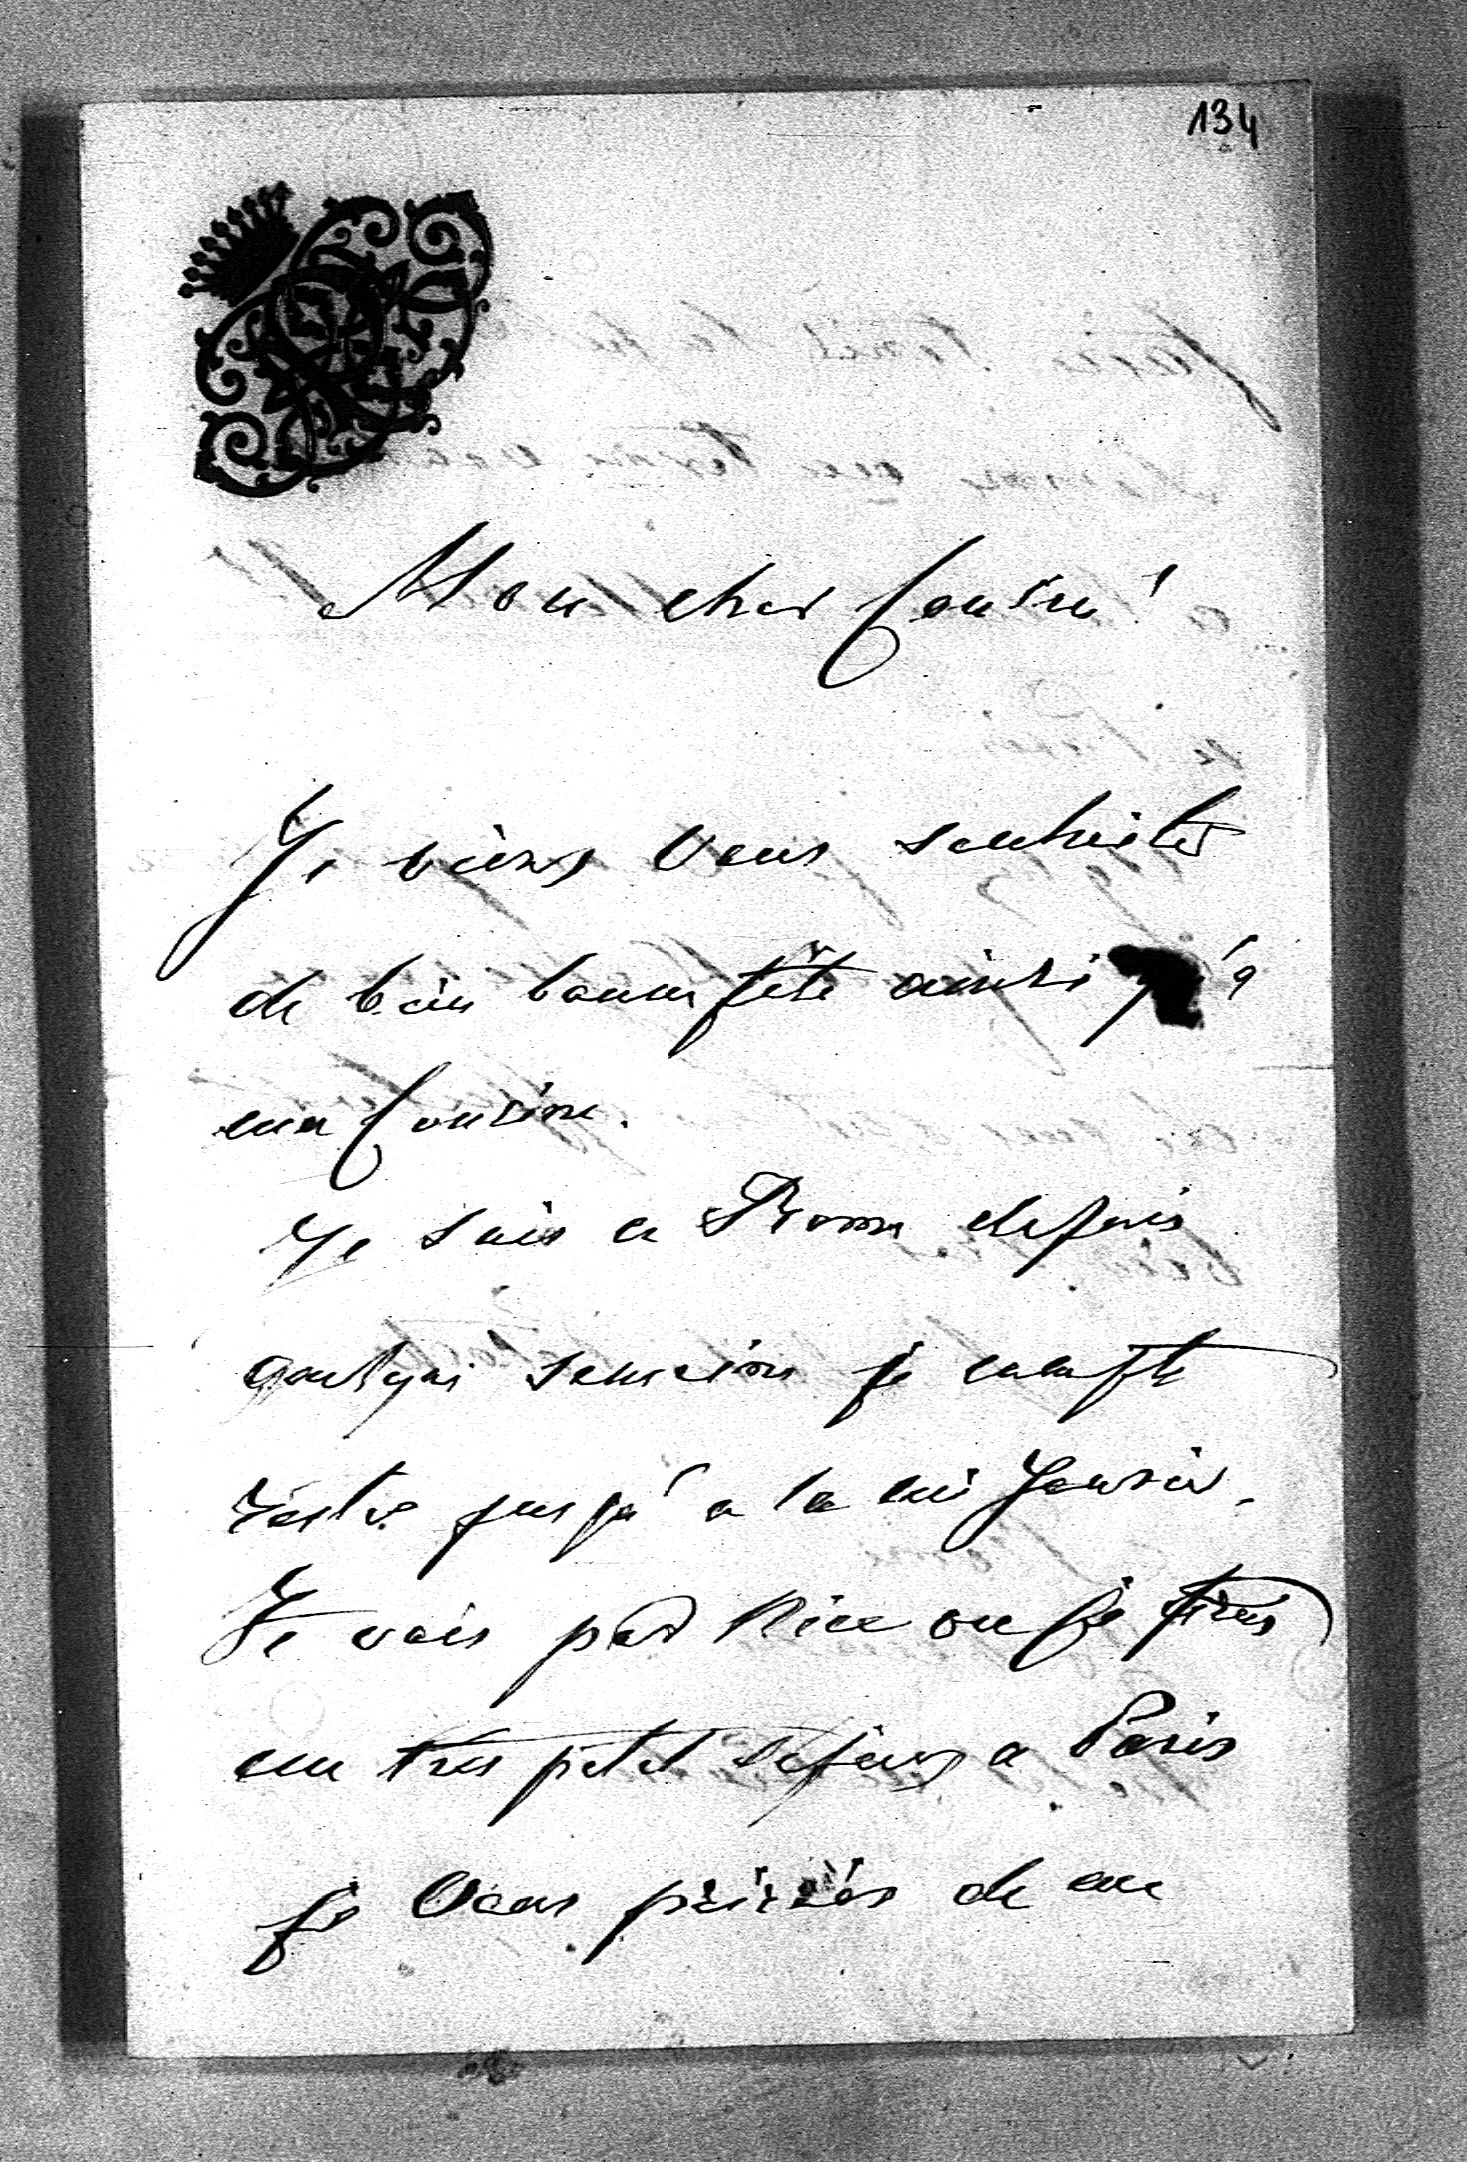 134
Mon cher Cousin!
Je viens vous souhaiter
de bien bonne fête ainsi qu'a
ma Cousine.
Je suis a Rome depuis
semaine je compte
rester jusqu'a la mi Janvier.
Je vais par Nice ou je ferais
un tres petit sejour a Paris
je vous prierés de me